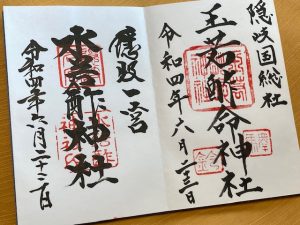 隠岐国総社
玉若酢命神社
令和四年六月二十三日
隠岐一宮
水若酢神社
令和四年六月二十二日